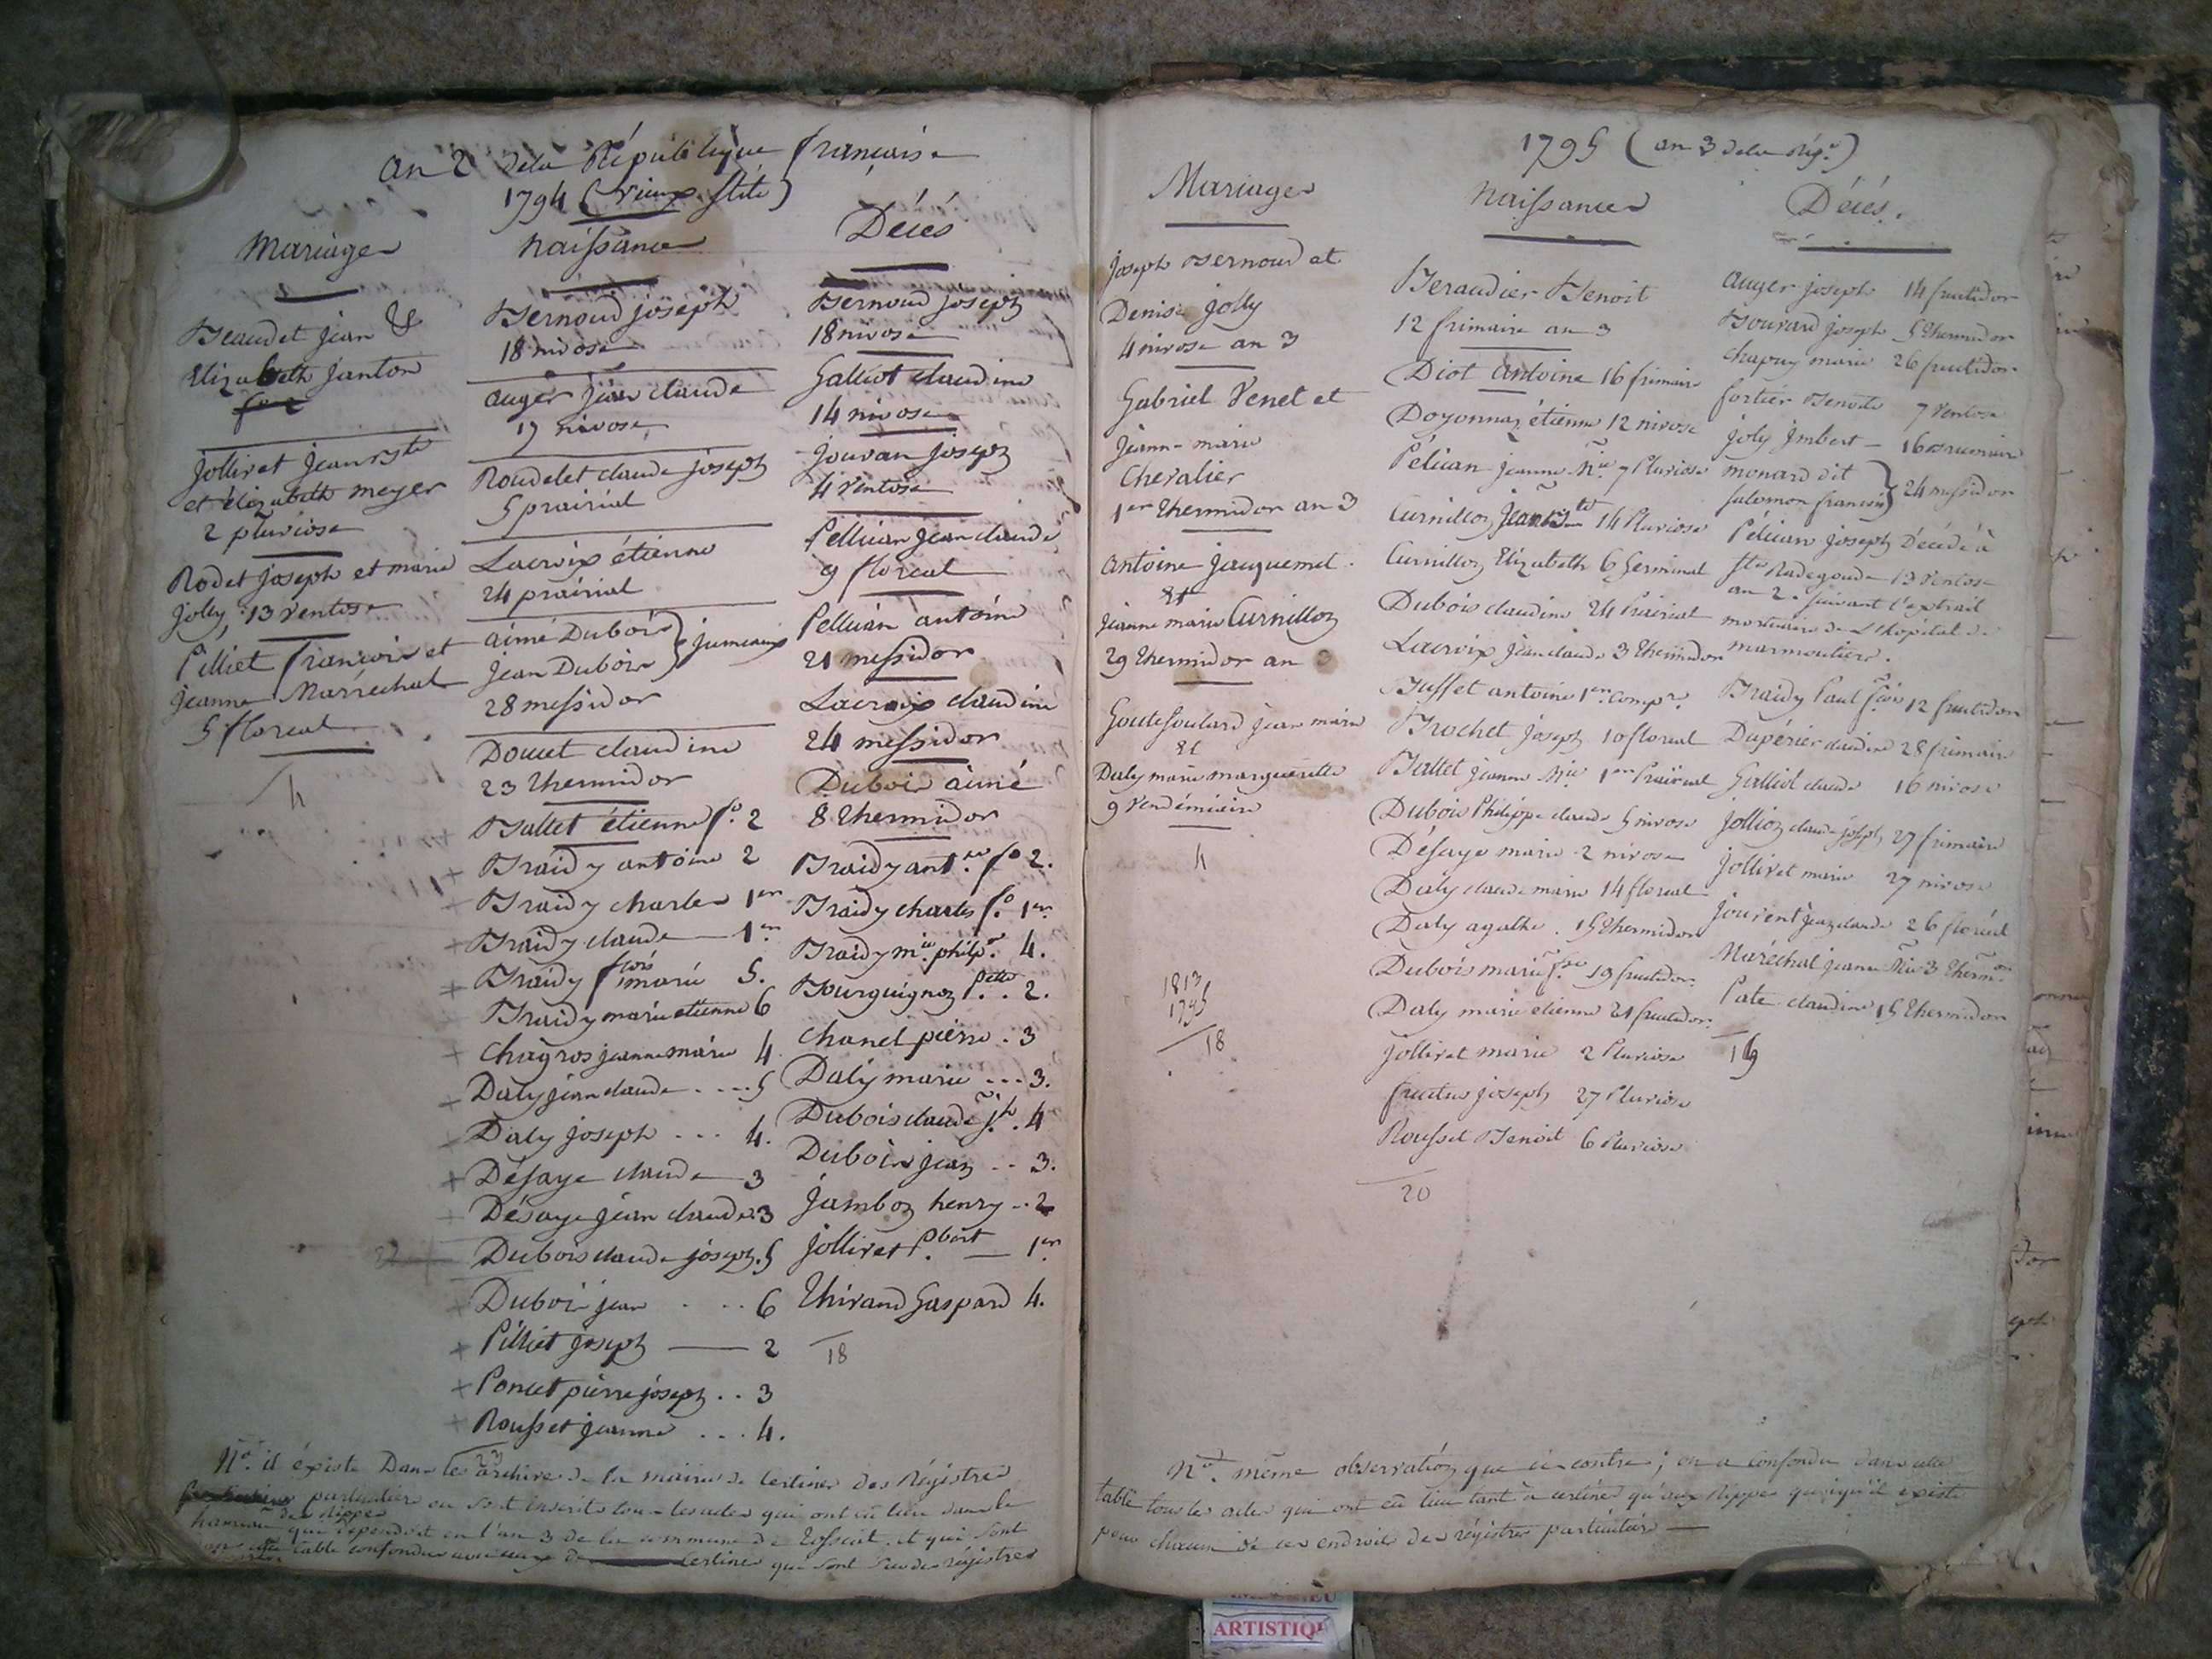 An 2 de la République française
1794 (vieux stile)
Mariages
Beaudet jean &
Elizabeth janton
fo 2
jolliret jean Bte
et élizabeth meyer
2 pluviose
Rodet joseph et marie
jolly, 13 ventose
Pilliet françois et
jeanne Maréchal
5 floreal
4
naissance
Bernoud joseph
18 nivose
auger jean claude
17 nivose
Roudelet claude joseph
5 prairial
Lacroix étienne
24 prairial
aimé Dubois } jumeaux
jean Dubois
28 messidor
Doucet claudine
23 thermidor
Ballet étienne fo. 2
+ Braidy antoine 2
Braidy charles 1er
+ Braidy claude 1er
+ Braidy fçois marie 5.
Braidy marie etienne 6
+ Chagros jeanne marie 4.
+ Daly jean claude .... 5
Daly joseph ... 4.
+ Désaye claude 3
Désaye jean claude 3
Dubois claude joseph. 5
Dubois jean ... 6
+ Pilliet joseph 2
+ Poncet pierre joseph .. 3
+ Rousset jeanne ... 4.
23
Décés
Bernoud joseph
18 nivose
Galliot claudine
14 nivose
jouvan joseph
4 ventose
Pellican jean claude
9 floreal
Pellican antoine
21 messidor
Lacroix claudine
24 messidor
Dubois aimé
8 thermidor
Braidy ant.ne fo 2.
Braidy charles fo. 1er.
Braidy mie. philip.e 4.
Bourguignon P.ette . 2.
Chanel pierre . 3
Daly marie ... 3.
Dubois claude j.h . 4
Dubois jean .. 3.
jambon henry .. 2
jolliret P. 1er
Thirand Gaspard 4.
18
Na. il éxiste Dans les archives de la mairie de Certines des Régistres
particuliers ou sont inscrits tous les actes qui ont eu lieu dans le
hameau des Rippes que dépendoit en l'an 3 de la commune de Tossiat. et qui sont
table confondus avec ceux de Certines qui sont sur des régistres
1795 (an 3 de la Rép.e)
Mariages
joseph Bernoud et
Denise jolly
4 nivose an 3
Gabriel Venet et
jeanne-marie
Chevalier
1er thermidor an 3
antoine jacquemet
et
jeanne marie Curnillon
29 thermidor an 3
Goutefoulard jean marie
et
Daly marie marguerette
9 vendémiaire
4
1813
1795
18
Naissances
Beraudier Benoit
12 frimaire an 3
Diot antoine 16 frimaire
Doyonnax étienne 12 nivose
Pélican jeanne Mie 7 Pluviose
Curnillon jean Bte 14 Pluviose
Curnillon Elizabeth 6 Germinal
Dubois claudine 24 Prairial
Lacroix jean claude 3 thermidor
Buffet antoine 1er. comp.re
Brochet joseph 10 floreal
Ballet jeanne Mie 1er Prairial
Dubois Philippe claude 5 nivose
Désaye marie 2 nivose
Daly claude marie 14 floreal
Daly agathe . 15 thermidor
Dubois marie fse 19 fructidor.
Daly marie etienne 21 fructidor
jolliret marie 2 Pluviose
fructus joseph 27 Pluviose
Rousset Benoit 6 Pluviose
20
Décés.
auger joseph 14 fructidor
Bouvard joseph 5 thermidor
chapuy marie 26 fructidor
fortier Benoite 7 ventose
joly jmbert 16 brumaire
monard dit
salomon françois } 24 messidor
Pélican joseph Décédé à
Ste Radegonde 13 ventose
an 2. suivant l'extrait
mortuaire de l'hopital de
marmoutiers.
Braidy Paul fçois 12 fructidor
Dupérier claudine 28 frimaire
Galliot claude 16 nivose
jollion claude joseph 27 frimaire
jolliret marie 27 nivose
jourent jean claude 26 floréal
Maréchal jeanne Mie 3 therm.or
Pate claudine 15 thermidor
Na. même observation que ci contre; on a confondu dans cette
table tous les actes qui ont eû lieu tant à certines qu'aux Rippes quoiqu'il existe
pour chacun de ces endroits des régistres particuliers
ARTISTIQ